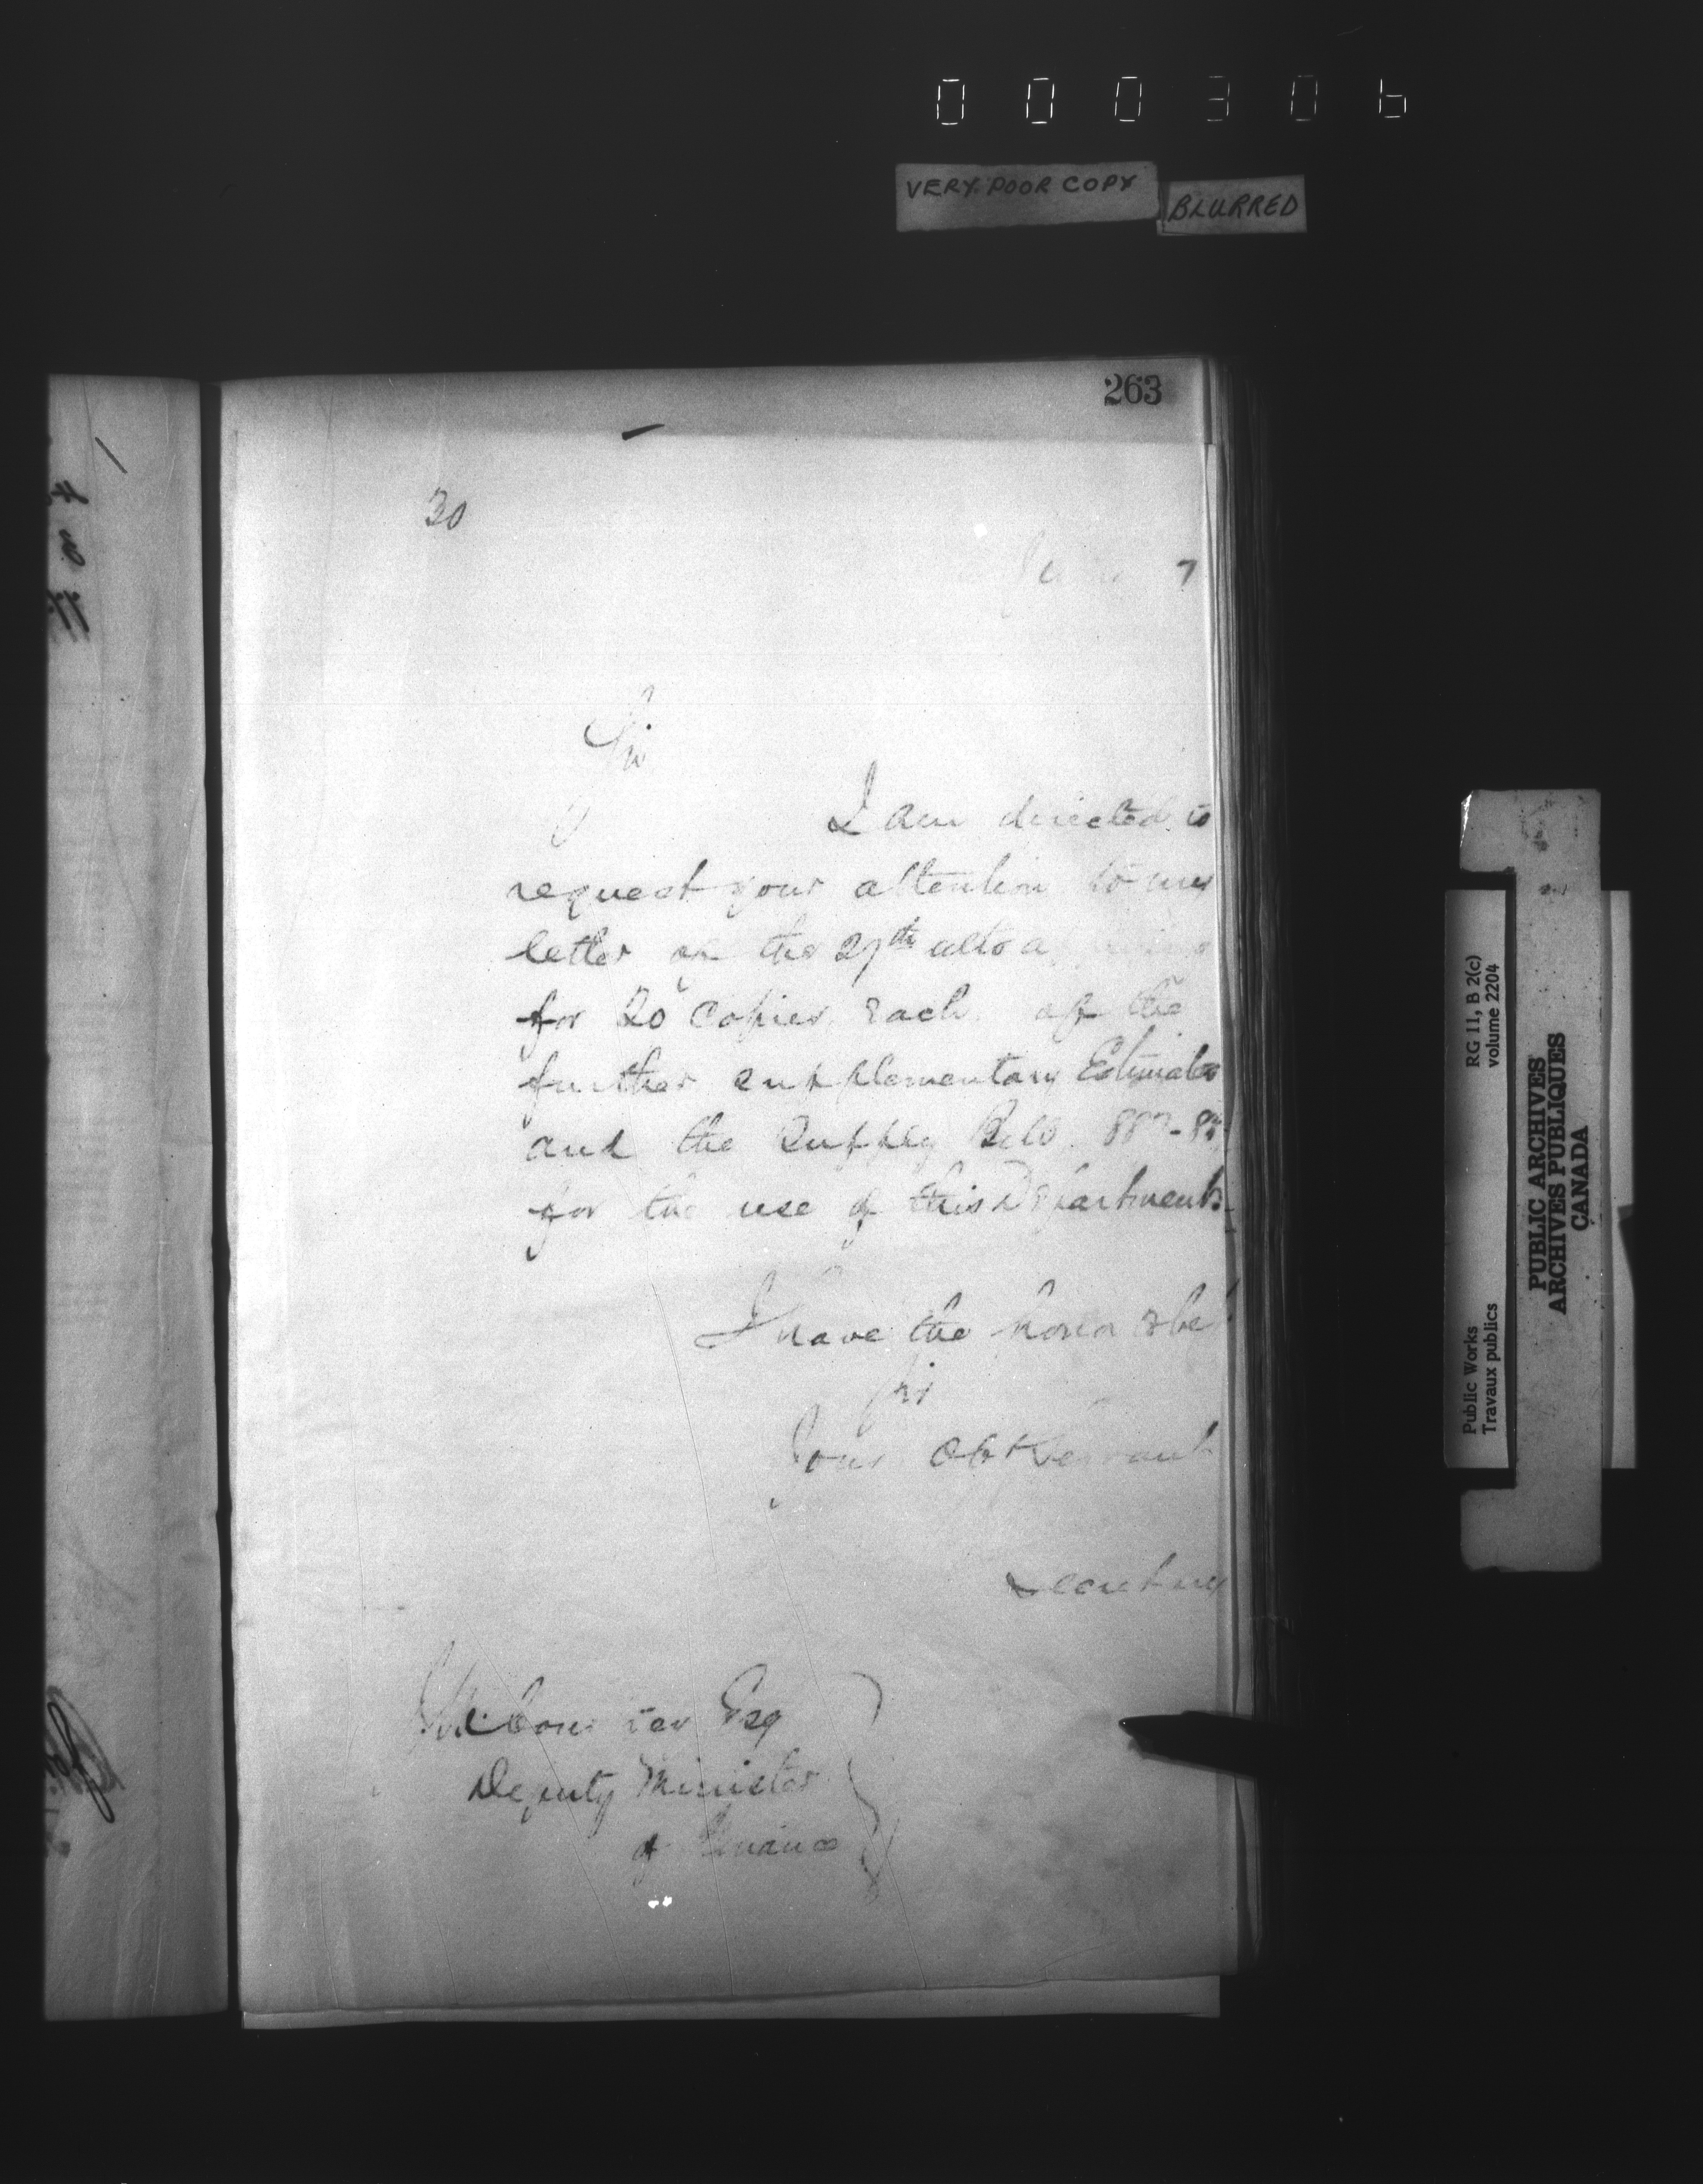 000306
VERY POOR COPY
BLURRED
263
30
June 7
Sir
I am directed to
request your attention to my
letter of the 27th ulto a
for 20 copies each of the
further supplementary Estimates
and the Supply Bill 887-88
for the use of this Department.
I have the honor to be
Sir
Your Obt Servant
Secretary
Esq
Deputy Minister
of Finance
RG 11, B 2(c)
volume 2204
Public Works
Travaux publics
PUBLIC ARCHIVES
ARCHIVES PUBLIQUES
CANADA